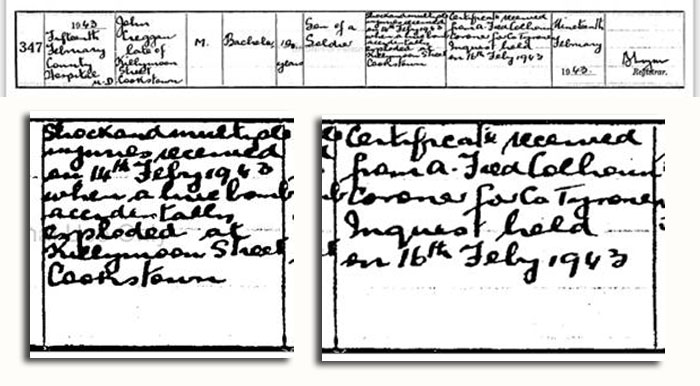 347
1943
Fifteenth
February
County
Hospital
M.D.
John
Creggan
late of
Killymoon
Street
Cookstown
M.
Bachelor
years
Son of a
Soldier
Shock and multiple
injuries received
on 14th Feby 1943
when a live bomb
accidentally
exploded at
Killymoon Street
Cookstown
Certificate received
from A. Fred Colhoun
Coroner for Co Tyrone
Inquest held
on 16th Feby 1943
Nineteenth
February
1943.
Registrar.
Shock and multiple
injuries received
on 14th Feby 1943
when a live bomb
accidentally
exploded at
Killymoon Street
Cookstown
Certificate received
from A. Fred Colhoun
Coroner for Co Tyrone
Inquest held
on 16th Feby 1943